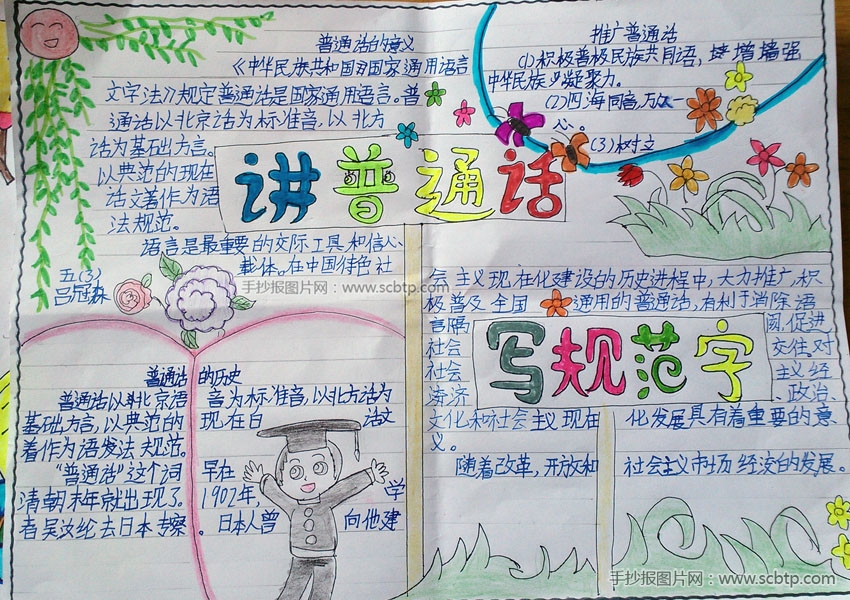 普通话的意义
《中华民族共和国》国家通用语言
文字法》规定普通话是国家通用语言。普
通话以北京话为标准音、以北方
话为基础方言。
以典范的现在
话文著作为语
法规范。
语言是最重要的交际工具和信心
载体。在中国特色社
五(3)
推广普通话
(1)积极普极民族共同语,增墙强
中华民族凝聚力。
(2)四海同音,万众一
心。
(3)树文
讲普通话
手抄报图片网:www.scbtp.com
会主义现在化建设的历史进程中,大力推广,积
极普及全国通用的普通话,有利于消除语
言隔阂,促进
社会交往,对
社会主义经
济、政治、
文化和社会主义现在化发展具有着重要的意
义。
随着改革,开放和社会主义市场经济的发展。
写规范字
普通话的历史
普通话以北京语音为标准音,以北方话为
基础方言,以典范的现在白话文
着作为语发法规范。
“普通话”这个词早在
清朝末年就出现了。1902年,学
者吴汝纶去日本考察。日本人曾向他建
手抄报图片网:www.scbtp.com